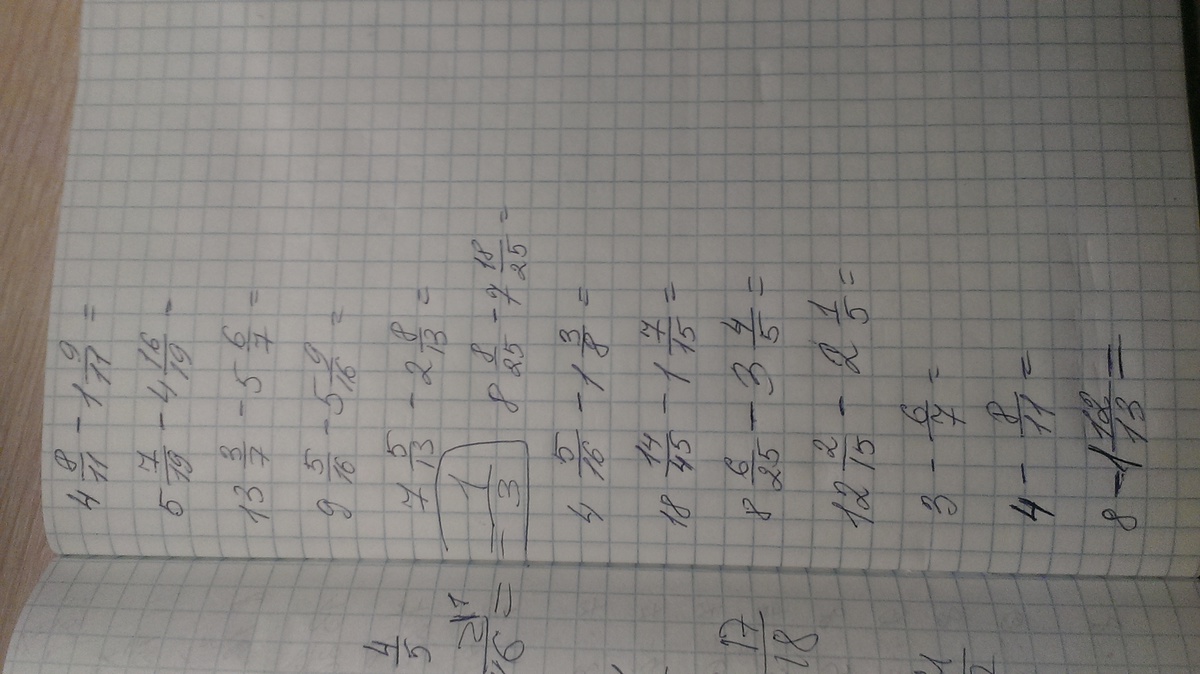 4 8/11 - 1 9/11 =
5 7/19 - 4 16/19 -
13 3/7 - 5 6/7 =
9 5/16 - 5 9/16 =
7 5/13 - 2 8/13 =
= 1/3
8 8/25 - 7 18/25 =
4 5/16 - 1 3/8 =
18 14/45 - 1 7/15 =
8 6/25 - 3 4/5 =
12 2/15 - 2 1/5 =
3 - 6/7 =
4 - 8/11 =
8 - 1 12/13 =
4/5
17/18